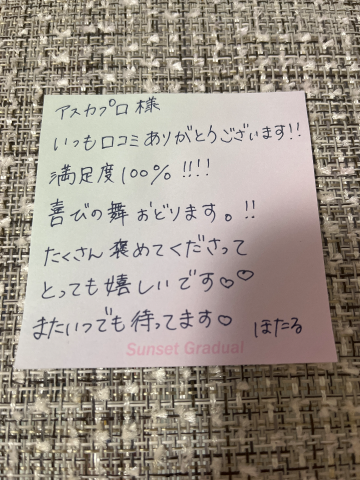 アスカプロ様
いつも口コミありがとうございます!!
満足度100% !!!!
喜びの舞おどります。!!
たくさん褒めてくださって
とっても嬉しいです♡♡
またいつでも待ってます♡ ほたる
Sunset Gradual